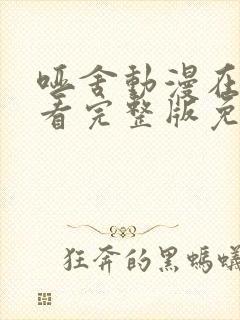 哑舍動漫在
看完整版免
狂奔的黑螞蟻